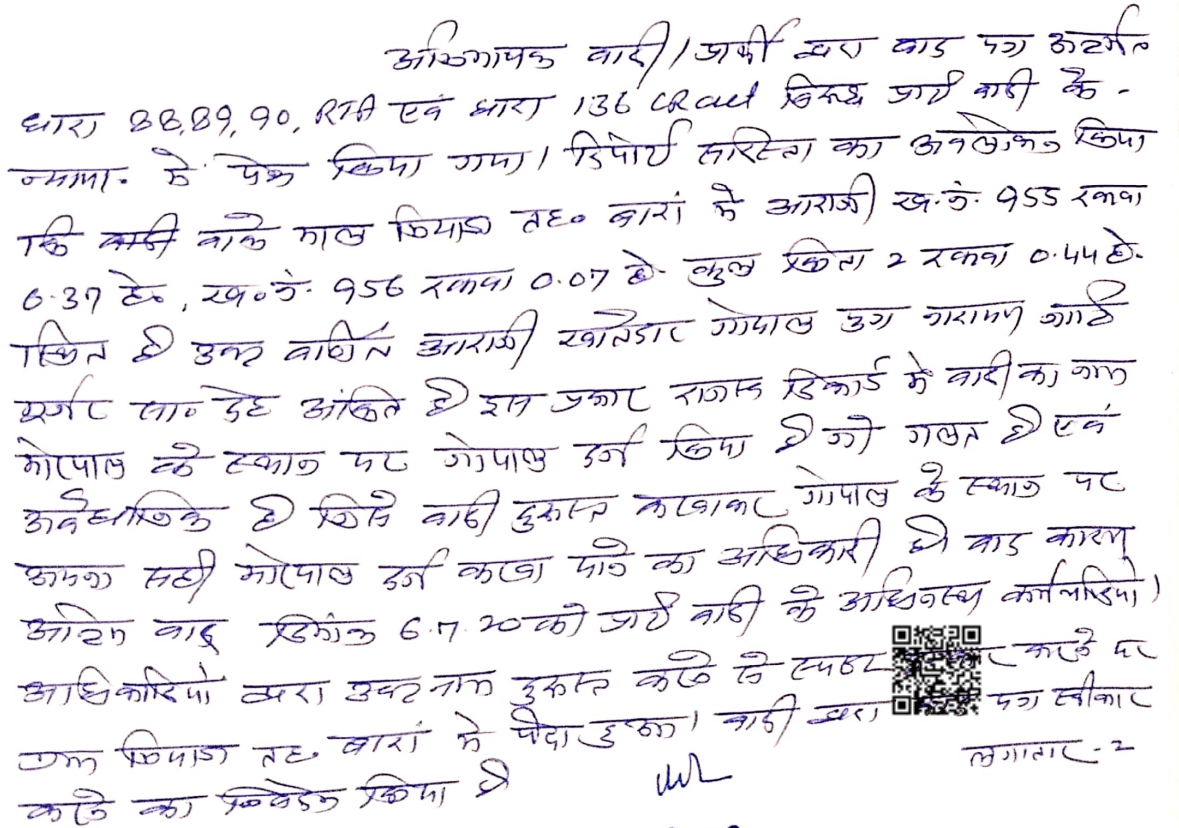 अभिभाषक वादी/प्रार्थी द्वारा वाद पत्र अन्तर्गत
धारा 88,89,90, RTA एवं धारा 136 LR act विरूद्ध प्रति वादी के -
न्याया. में पेश किया गया। रिपोर्ट सरिस्ता का अवलोकन किया
कि वादी वाके माल तह० बारां में आराजी ख.नं. 955 रकबा
0.37 है०, ख०नं. 956 रकबा 0.07 है. कुल किता 2 रकबा 0.44 है.
स्थित है उक्त वर्णित आराजी खातेदार गोपाल पुत्र नारायण जाति
गुर्जर सा० देह अंकित है इस प्रकार राजस्व रिकार्ड में वादी का नाम
मोरपाल के स्थान पर गोपाल दर्ज किया है जो गलत है एवं
अवैधानिक है जिसे वादी दुरूस्त करवाकर गोपाल के स्थान पर
अपना सही मोरपाल दर्ज करवा पाने का अधिकारी है। वाद कारण
अंतिम बार दिनांक 6.7.20 को प्रति वादी के अधिनस्थ कर्मचारियो/
अधिकारियो द्वारा उक्त नाम दुरूस्त करने से स्पष्ट करने पर
ग्राम तह. बारां में पैदा हुआ। वादी द्वारा पत्र स्वीकार
करने का निवेदन किया है
लगातार - 2